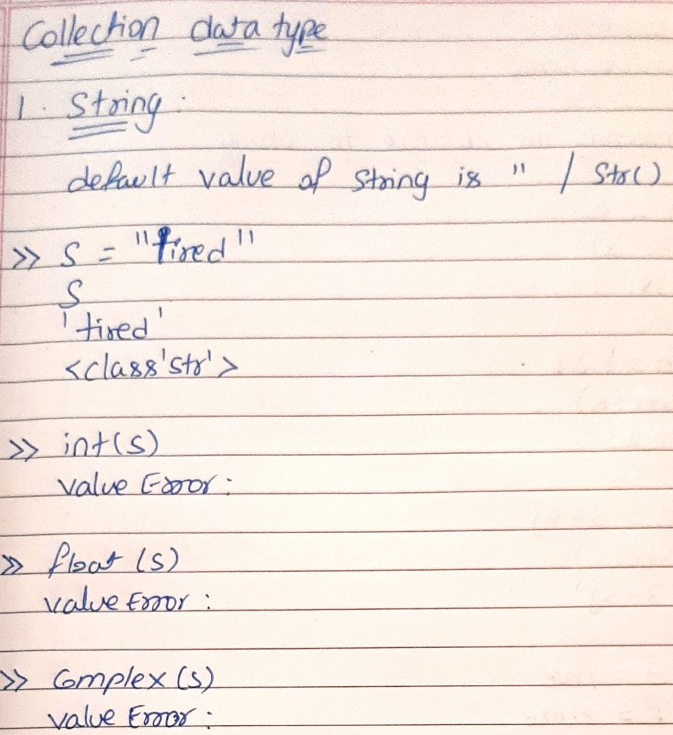 Collection data type
1. String
default value of string is '' / str()
>> S = "tired"
S
'tired'
<class'str'>
>> int(s)
value Error:
>> float (s)
value Error :
>> Complex (s)
value Error :